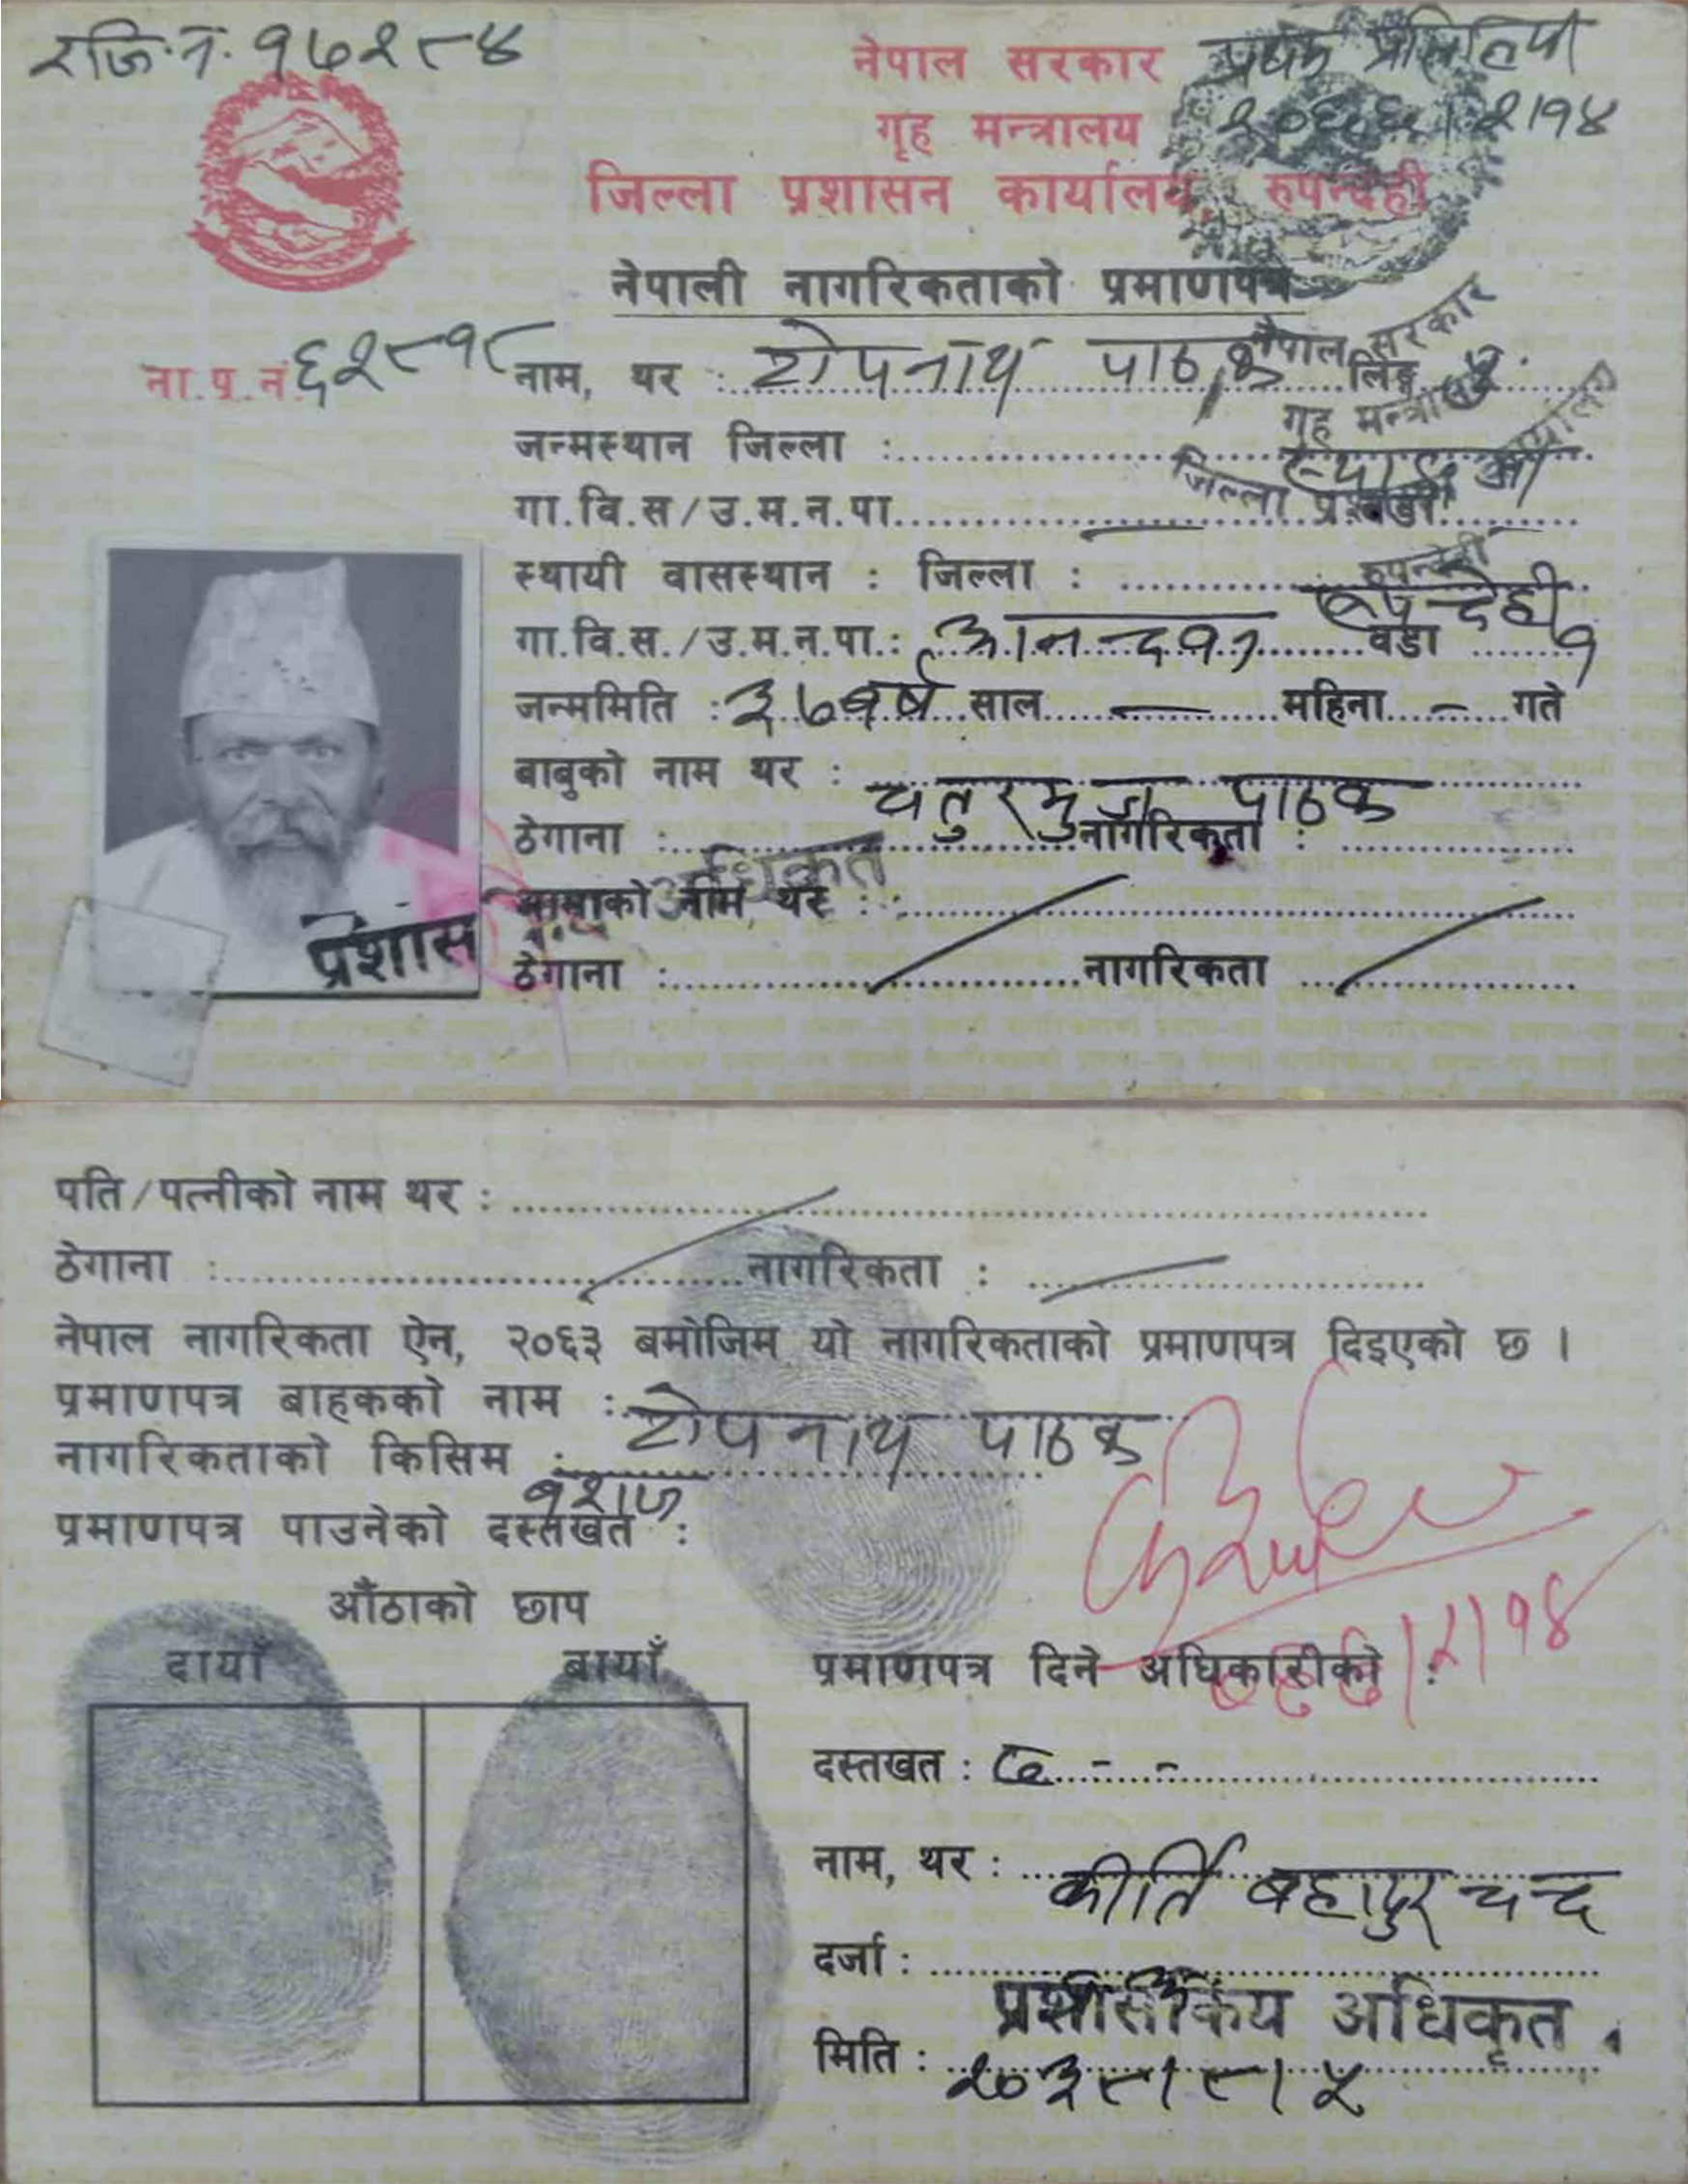 रजि.नं. १७२८४
प्रथम प्रतिलिपी
२०६६।२।१४
नेपाल सरकार
गृह मन्त्रालय
जिल्ला प्रशासन कार्यालय, रुपन्देही
नेपाली नागरिकताको प्रमाणपत्र
नेपाल सरकार
गृह मन्त्रालय
जिल्ला
रुपन्देही
ना.प.नं. ६२८१८
नाम, थर : टोपनाथ पाठक लिङ्ग पु.
जन्मस्थान जिल्ला : स्याङ्जा
गा.वि.स/उ.म.न.पा. — वडा —
स्थायी वासस्थान : जिल्ला : रुपन्देही
गा.वि.स./उ.म.न.पा.: आनन्दवन वडा १
जन्ममिति : ३७ वर्ष साल — महिना — गते
बाबुको नाम थर : चतुरभुज पाठक
ठेगाना : नागरिकता :
आमाको नाम थर :
ठेगाना : नागरिकता
प्रशास
अधिकृत
पति/पत्नीको नाम थर :
ठेगाना : नागरिकता :
नेपाल नागरिकता ऐन, २०६३ बमोजिम यो नागरिकताको प्रमाणपत्र दिइएको छ ।
प्रमाणपत्र बाहकको नाम : टोपनाथ पाठक
नागरिकताको किसिम : वंशज
प्रमाणपत्र पाउनेको दस्तखत :
औंठाको छाप
दायाँ बायाँ
प्रमाणपत्र दिने अधिकारीको :
दस्तखत :
नाम, थर : कीर्ति बहादुर चन्द
दर्जा :
प्रशासकिय अधिकृत
मिति : २०३८।८।५